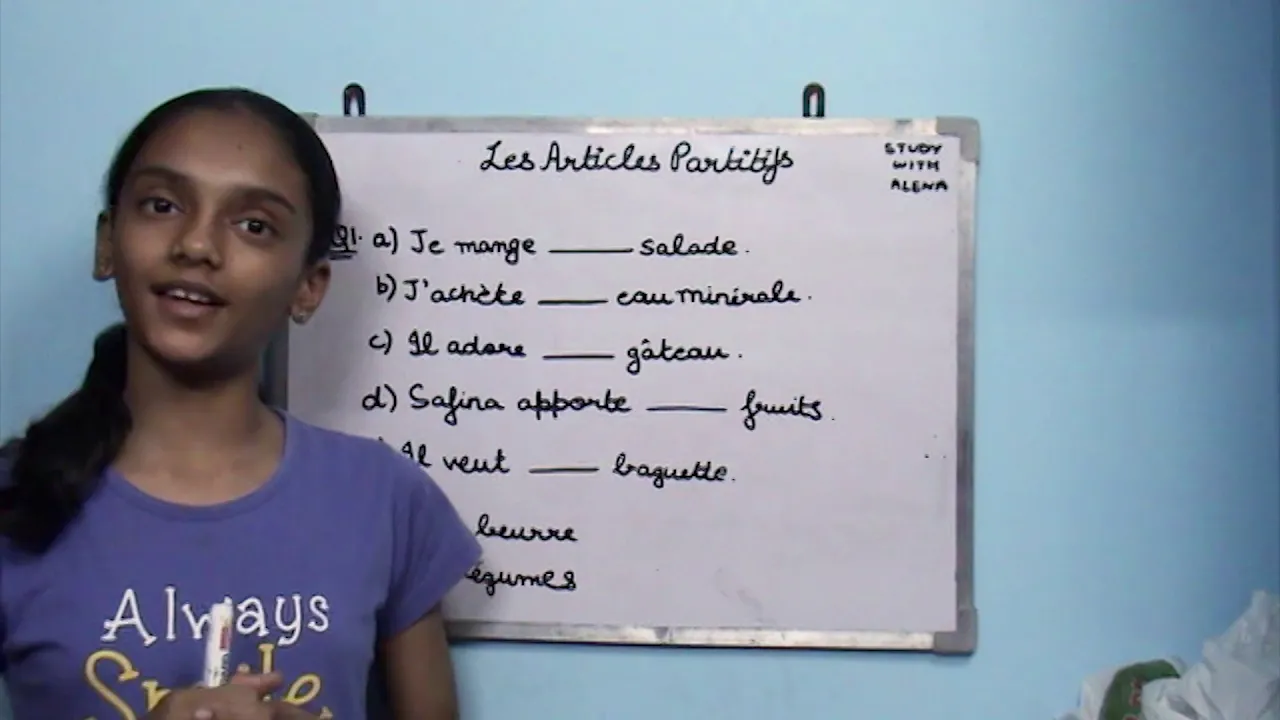 Les Articles Partitifs
STUDY
WITH
ALENA
Q1. a) Je mange ____ salade.
b) J'achète ____ eau minérale.
c) Il adore ____ gâteau.
d) Safina apporte ____ fruits.
Il veut ____ baguette.
beurre
égumes
Always
Smile